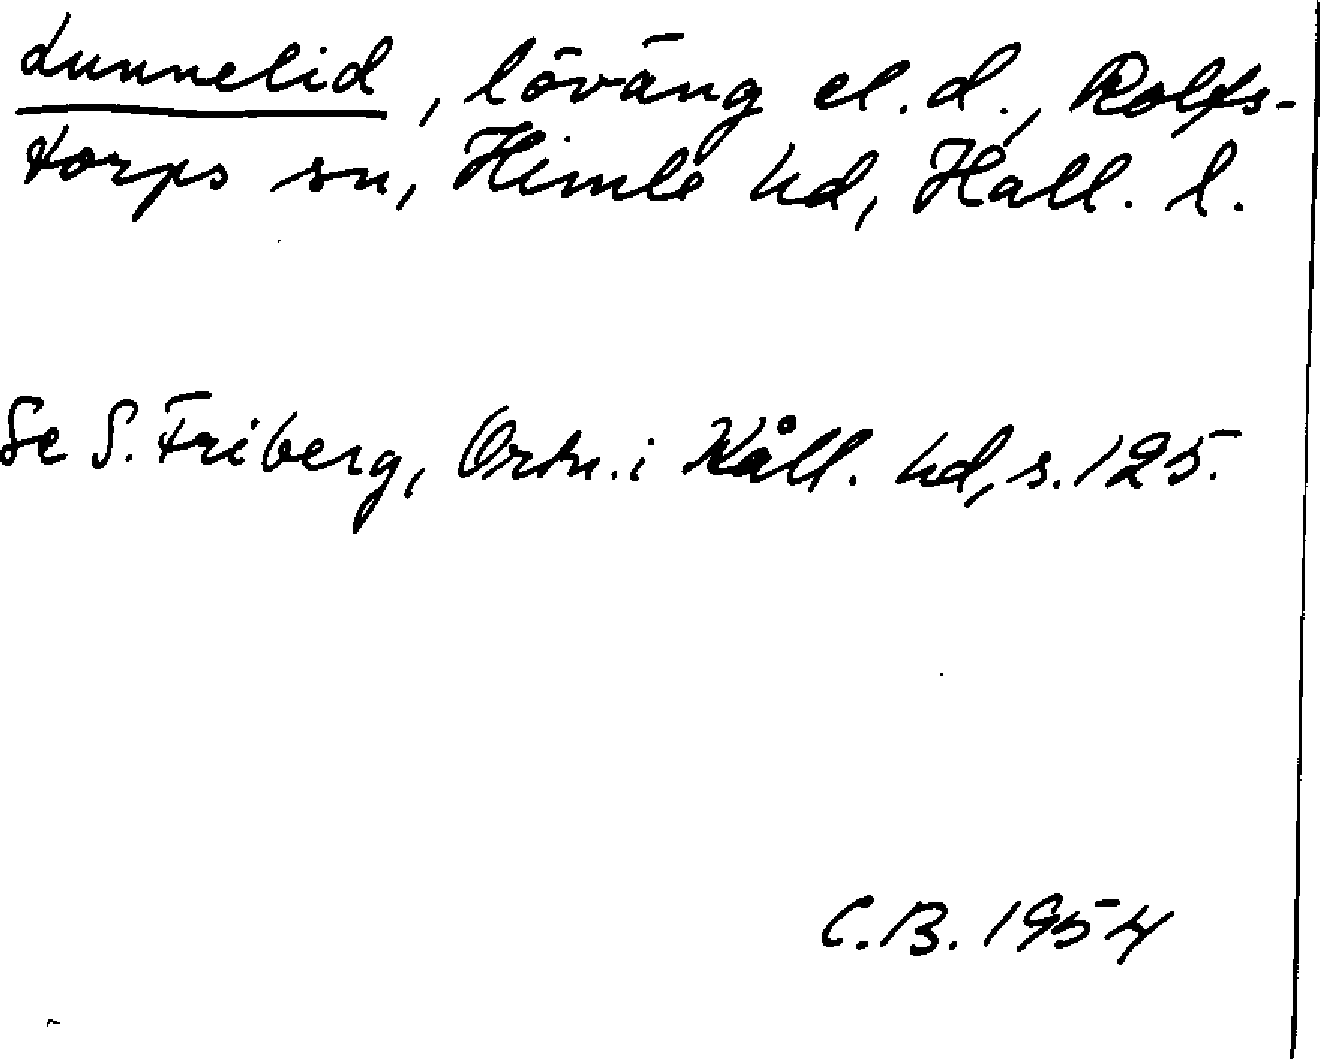 Lunnelid, löväng el.d., Rolfs-
torps sn, Himle hd, Hall. l.
Se S. Friberg, Ortn. i Kåll. hd, s. 125.
C.B. 1954